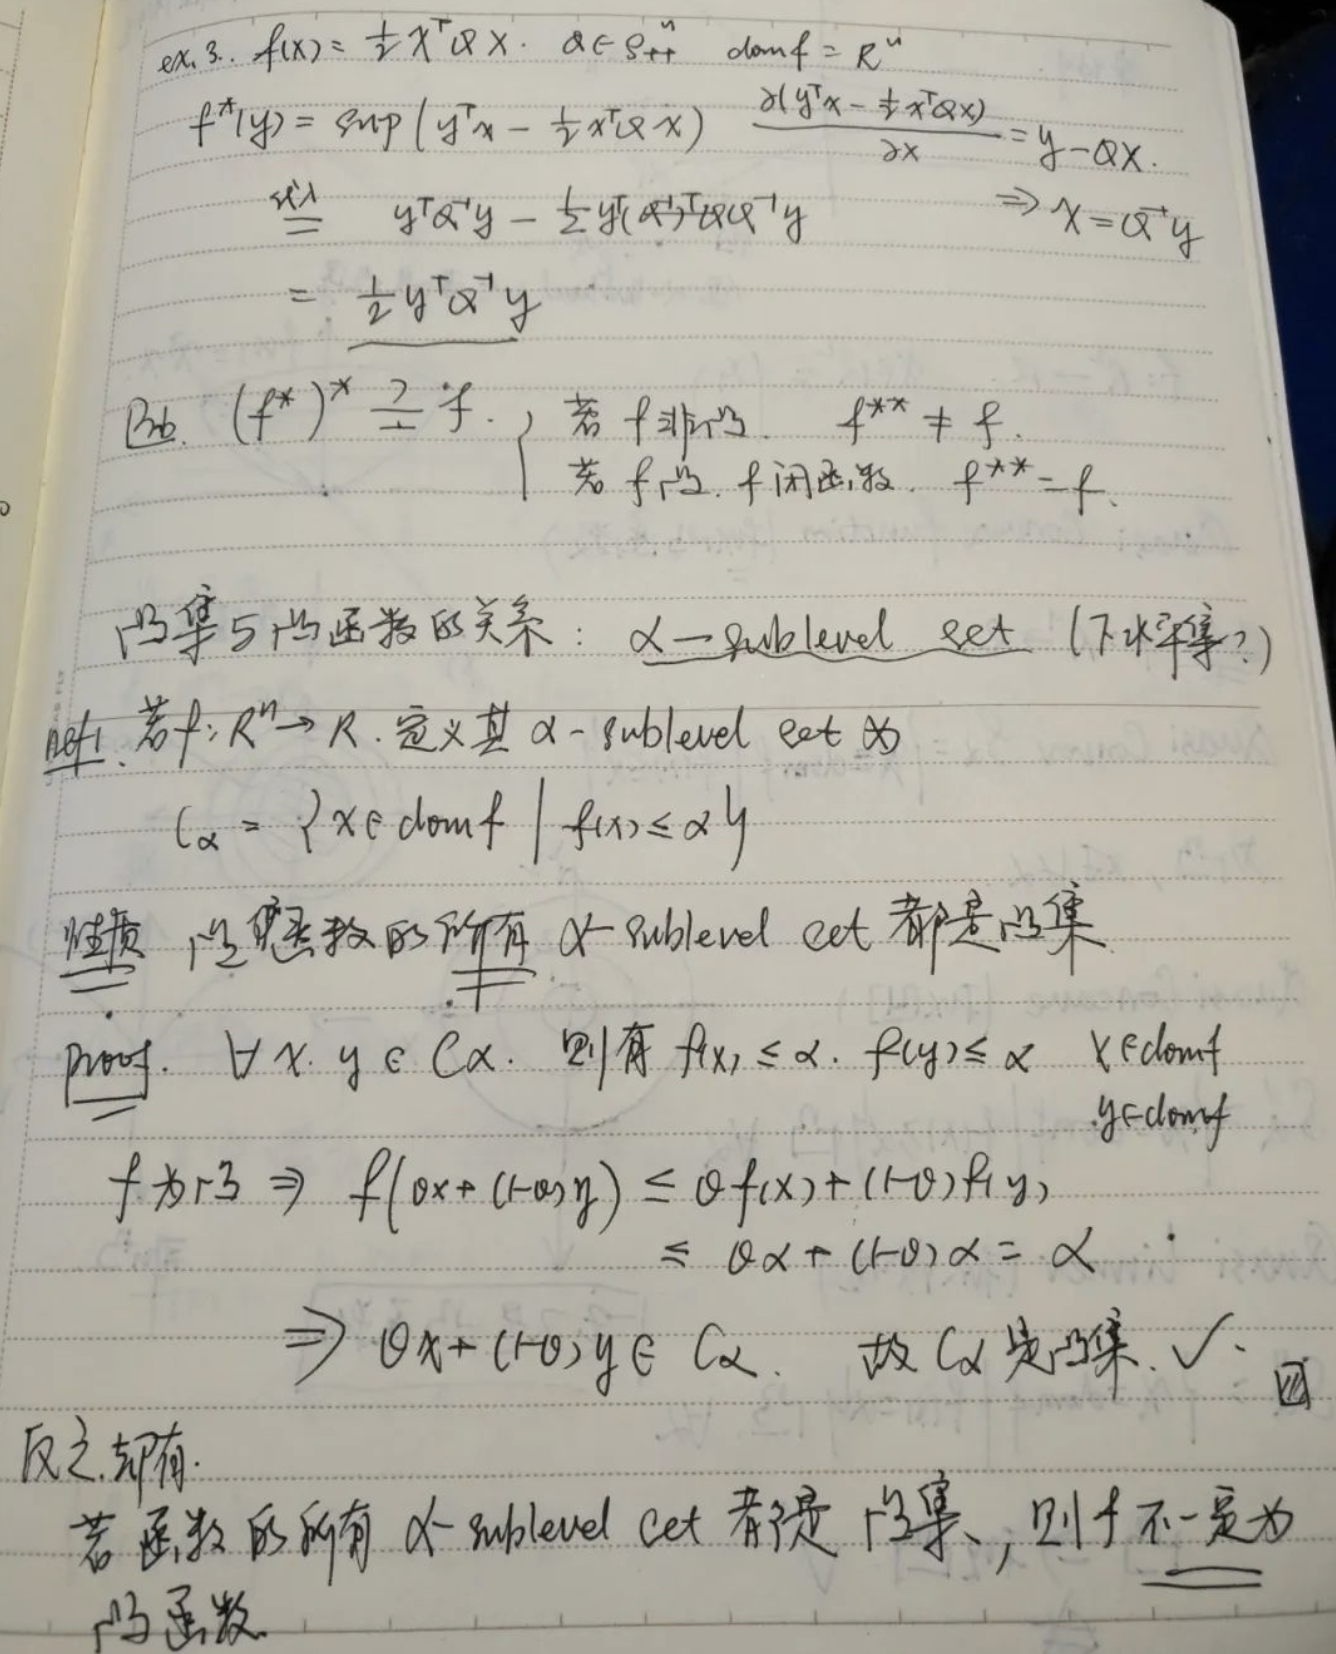 ex.3. f(x) = ½ xᵀQx. Q ∈ Sⁿ₊₊ dom f = Rⁿ
f*(y) = sup(yᵀx − ½xᵀQx) ∂(yᵀx − ½xᵀQx)/∂x = y − Qx.
代入= yᵀQ⁻¹y − ½yᵀ(Q⁻¹)ᵀQQ⁻¹y ⇒ x = Q⁻¹y
= ½yᵀQ⁻¹y
(f*)* ≟ f. { 若f非凸. f** ≠ f.
若f凸. f闭函数. f** = f.
凸集与凸函数的关系: α-sublevel set (下水平集?)
Def1. 若f: Rⁿ → R. 定义其α-sublevel set为
Cα = {x∈dom f | f(x) ≤ α}
性质 凸函数的所有α-sublevel set都是凸集
proof. ∀x. y ∈ Cα. 则有 f(x) ≤ α. f(y) ≤ α x∈domf
y∈domf
f为凸 ⇒ f(θx+(1-θ)y) ≤ θf(x)+(1-θ)f(y)
≤ θα+(1-θ)α = α
⇒ θx+(1-θ)y ∈ Cα. 故Cα是凸集. ✓.
反之,却有.
若函数的所有α-sublevel set都是凸集,则f不一定为
凸函数